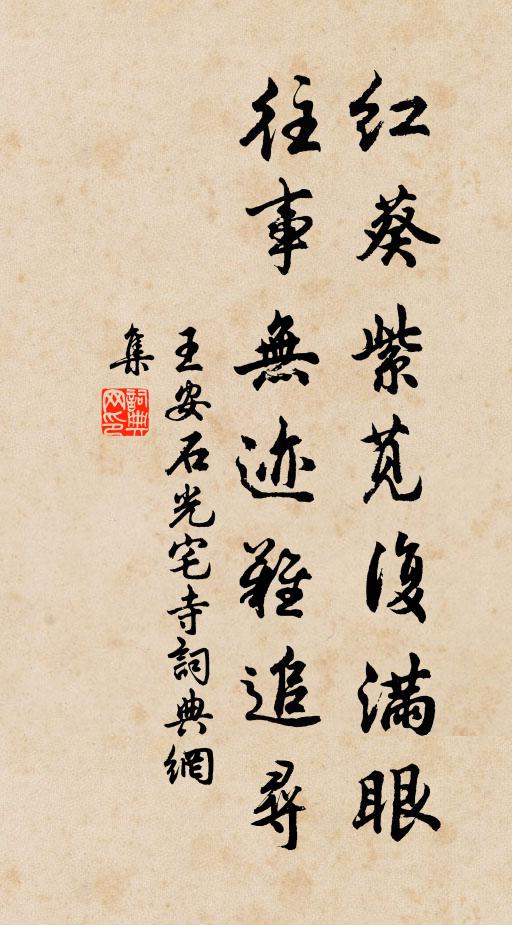 红葵紫苋復滿眼
往事無迹難追尋
王安石光宅寺詞典網
集
詞典
网印